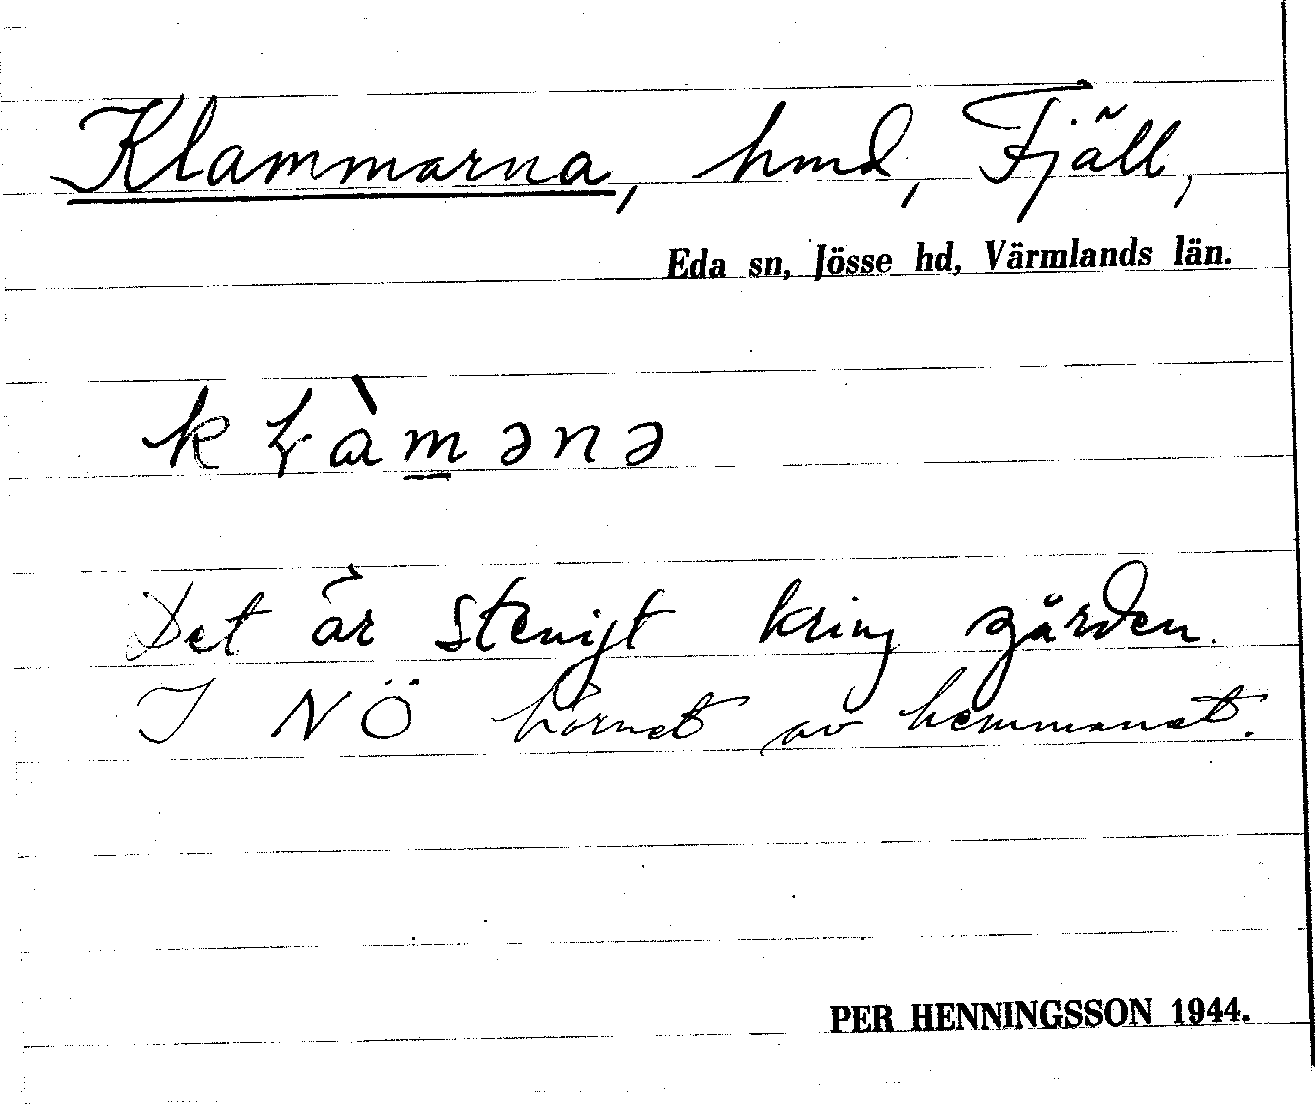 Klammarna, hmd, Fjäll,
Eda sn, Jösse hd, Värmlands län.
kɫàm̲ənə
Det är stenigt kring gården.
I NÖ hörnet av hemmanet.
PER HENNINGSSON 1944.